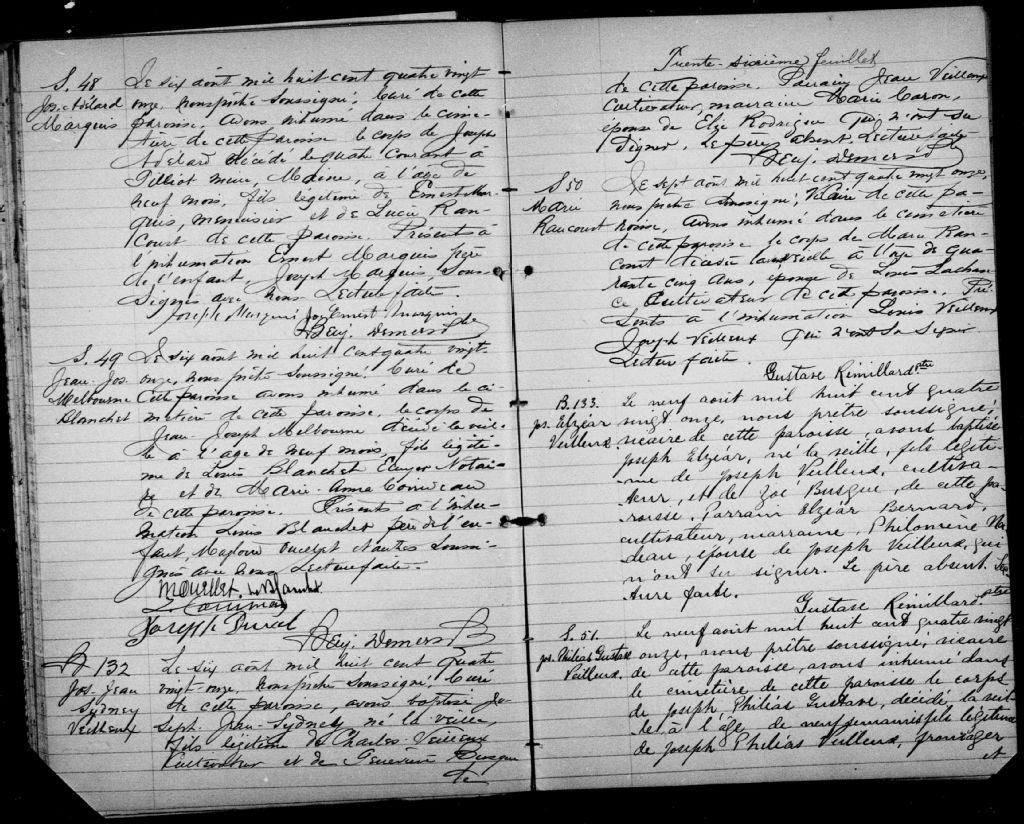 S. 48
Jos. Adélard
Marquis
Le six août mil huit cent quatre vingt
onze, nous prêtre soussigné, Curé de cette
paroisse, avons inhumé dans le cime-
tière de cette paroisse le corps de Joseph
Adélard décédé le quatre courant à
maine, à l'age de
neuf mois, fils légitime de Ernest Mar-
quis, menuisier et de Lucie Ran-
court de cette paroisse. Présents à
l'inhumation Ernest Marquis père
de l'enfant, Joseph Marquis Sous-
signés avec nous Lecture faite.
Joseph Marquis Jos Ernest Marquis
Benj. Demers Ptr
S. 49
Jean-Jos.
Melbourne
Blanchet
Le six août mil huit cent quatre vingt-
onze, nous prêtre soussigné, Curé de
cette paroisse avons inhumé dans le ci-
metière de cette paroisse, le corps de
Jean-Joseph Melbourne décédé la veil-
le à l'age de neuf mois, fils légiti-
me de Louis Blanchet Ecuyer Notai-
re et de Marie-Anna
de cette paroisse. Présents à l'inhu-
mation Louis Blanchet père de l'en-
fant et autres soussi-
gnés avec nous Lecture faite.
M Ouellet, L. Blanchet
Joseph
Benj. Demers Ptr
B 132
Jos-Jean
Sydney
Veilleux
Le six août mil huit cent quatre
vingt-onze, nous prêtre soussigné, Curé
de cette paroisse, avons baptisé Jo-
seph-Jean-Sydney né la veille,
fils légitime de Charles Veilleux
Cultivateur et de Genevieve Busque
de
Trente-sixième feuillet
de cette paroisse. Parrain, Jean Veilleux
Cultivateur, marraine Marie Caron,
épouse de Elzé Rodrigue Qui n'ont su
signer. Le père absent. Lecture faite
Benj. Demers Ptr
S 50
Marie
Rancourt
Le sept août mil huit cent quatre vingt onze,
nous prêtre soussigné, Vicaire de cette pa-
roisse, avons inhumé dans le cimetière
de cette paroisse le corps de Marie Ran-
court décédée la veille à l'age de qua-
rante cinq ans, épouse de Louis Lachan-
ce Cultivateur de cette paroisse. Pré-
sents à l'inhumation Louis Veilleux
Joseph Veilleux Qui n'ont su signer
Lecture faite.
Gustave Rémillard ptre
B. 133.
Jos. Elzéar
Veilleux
Le neuf août mil huit cent quatre
vingt onze, nous prêtre soussigné,
vicaire de cette paroisse, avons baptisé
Joseph Elzéar, né la veille, fils légiti-
me de Joseph Veilleux, cultiva-
teur, et de Zoé Busque, de cette pa-
roisse, Parrain Elzéar Bernard,
cultivateur, marraine, Philomène Na-
deau, épouse de Joseph Veilleux, qui
n'ont su signer. Le père absent. Lec-
ture faite.
Gustave Rémillard, ptre
S. 51.
Jos. Philias Gustave
Veilleux.
Le neuf août mil huit cent quatre vingt
onze, nous prêtre soussigné, vicaire
de cette paroisse, avons inhumé dans
le cimetière de cette paroisse le corps
de Joseph Philias Gustave, décédé, la veil-
le à l'âge de neuf semaines fils légitime
de Joseph Philias Veilleux, fromager
et